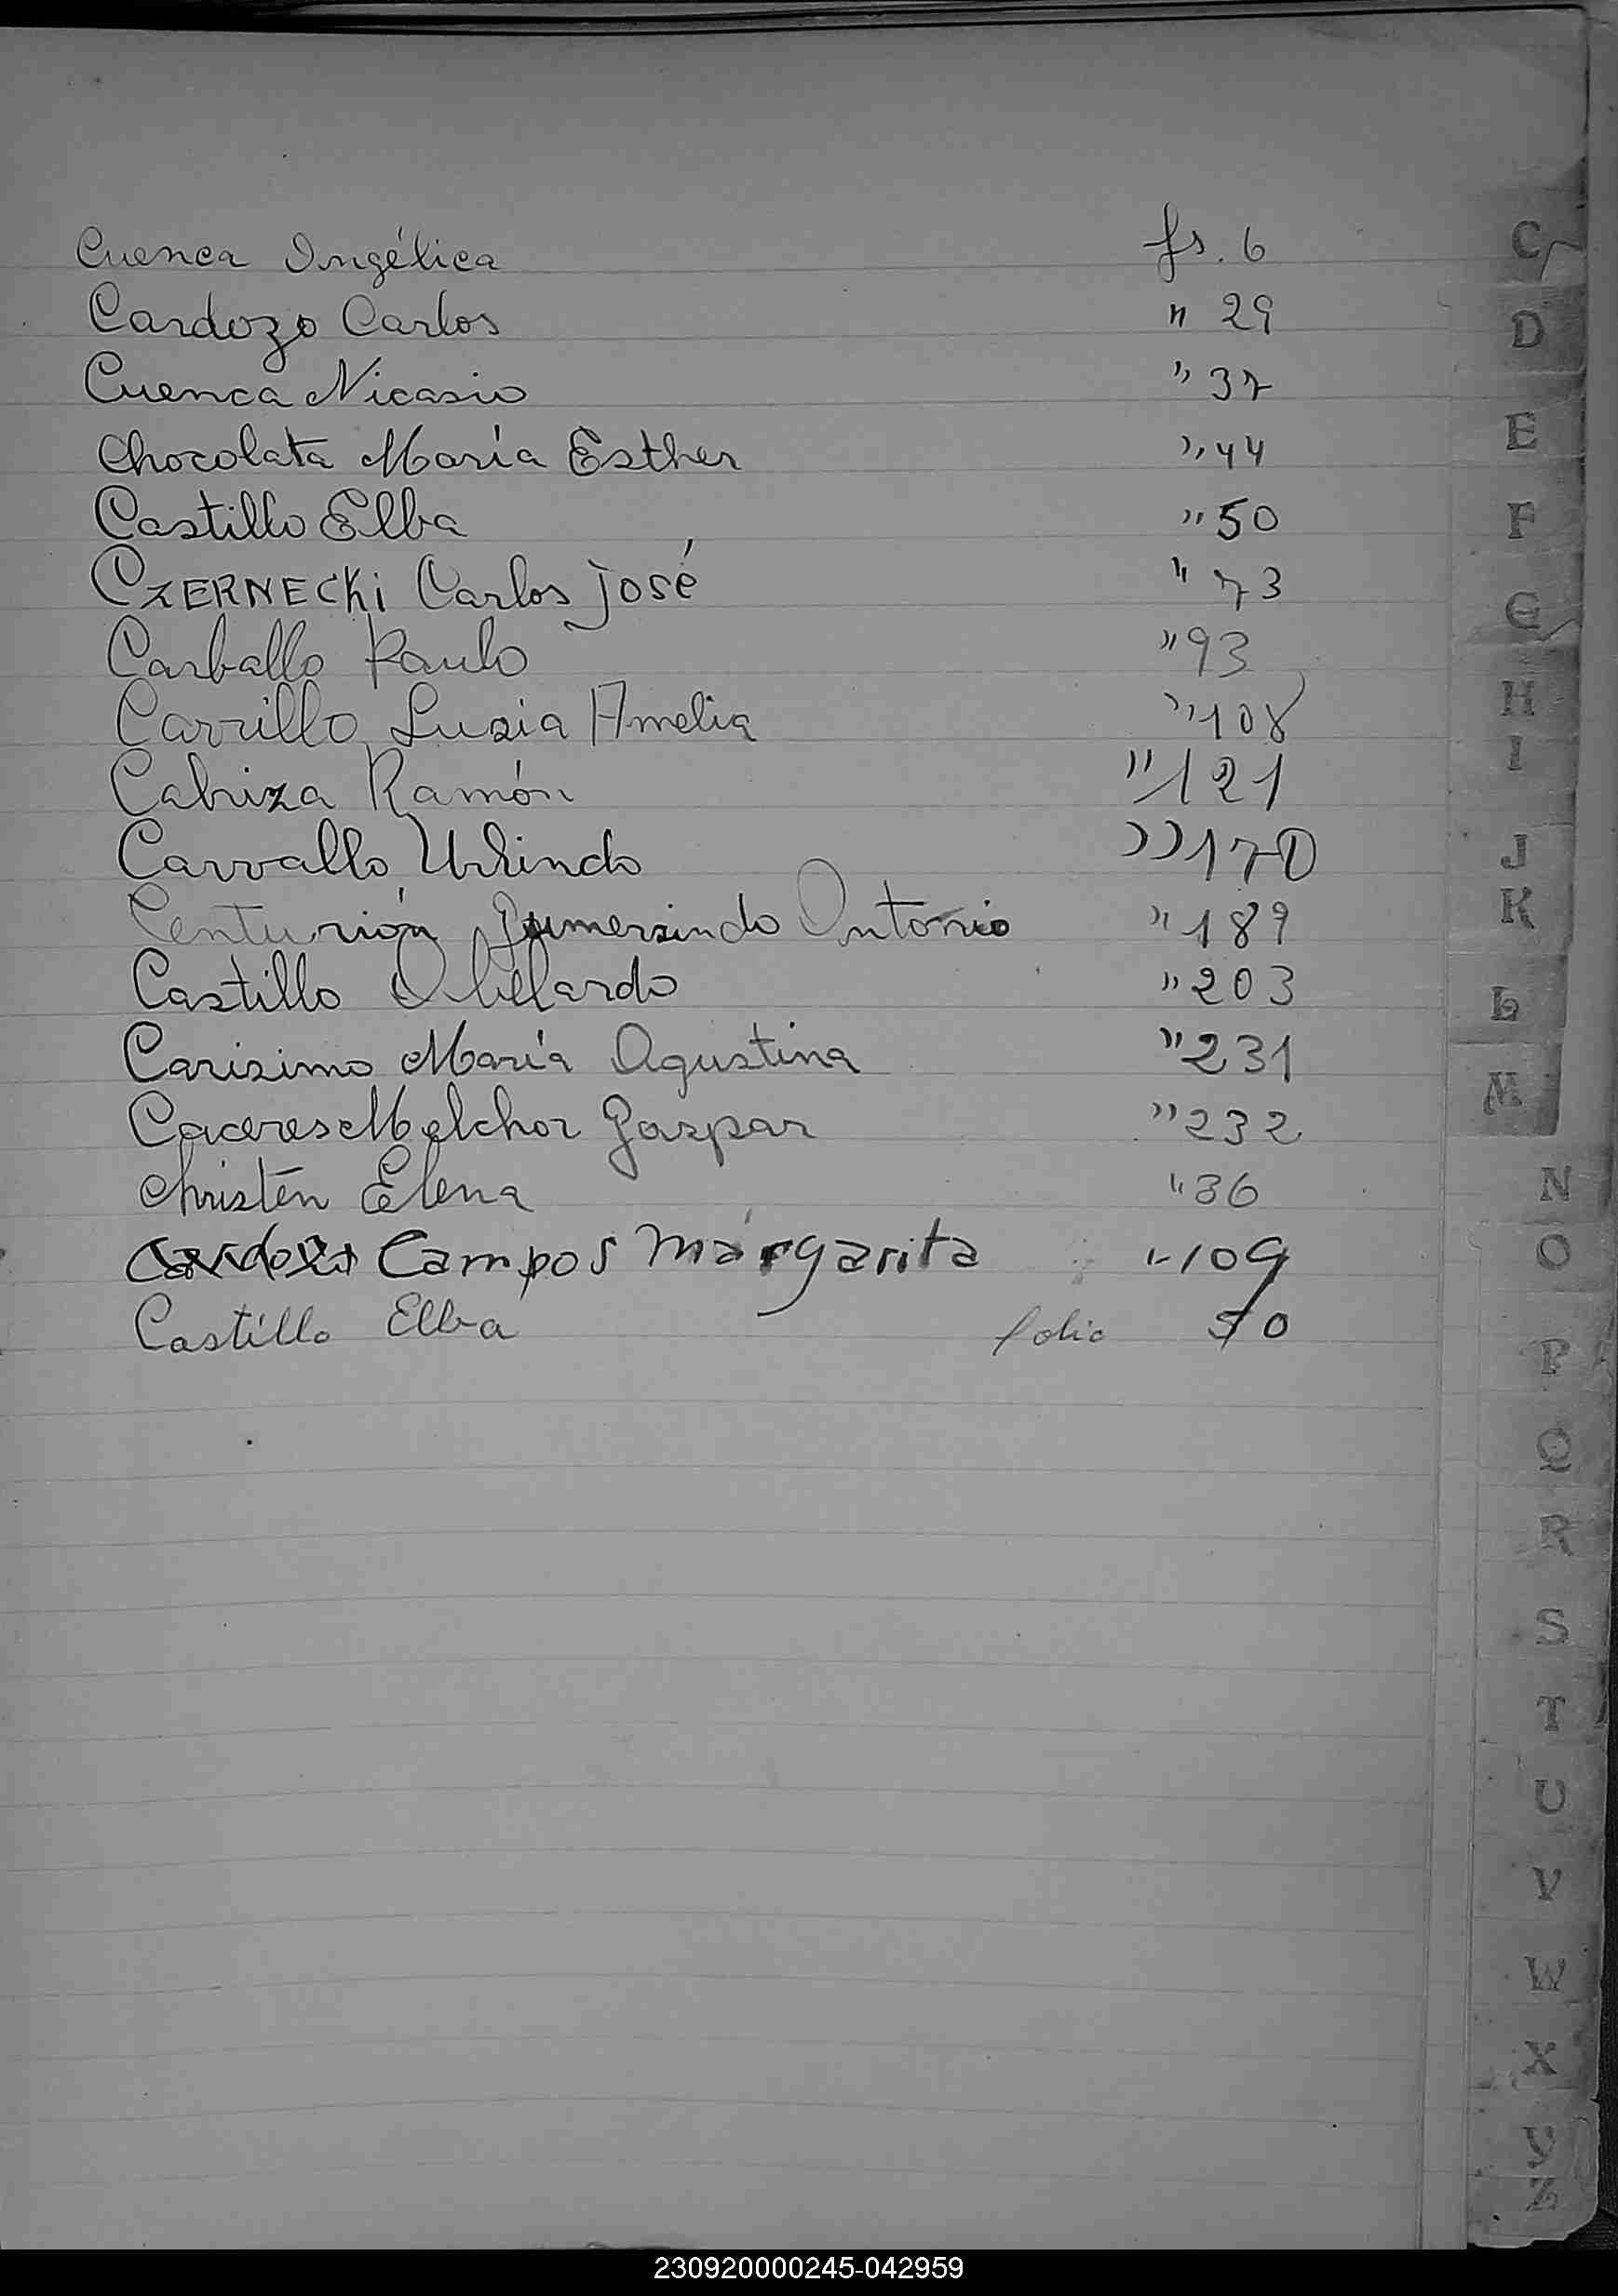 Cuenca Angélica fs. 6
Cardozo Carlos " 29
Cuenca Nicasio " 37
Chocolata María Esther " 44
Castillo Elba " 50
CZERNECKi Carlos José " 73
Carballo Paulo " 93
Carrillo Lusia Amelia " 108
Cabriza Ramón " 121
Carvallo Urlindo " 170
Centurión Gumersindo Antonio " 189
Castillo Abelardo " 203
Carisimo María Agustina " 231
Caceres Melchor Gaspar " 232
Christen Elena " 36
Campos Margarita " 109
Castillo Elba folio 50
C
D
E
F
G
H
I
J
K
L
M
N
O
P
Q
R
S
T
U
V
W
X
Y
Z
230920000245-042959